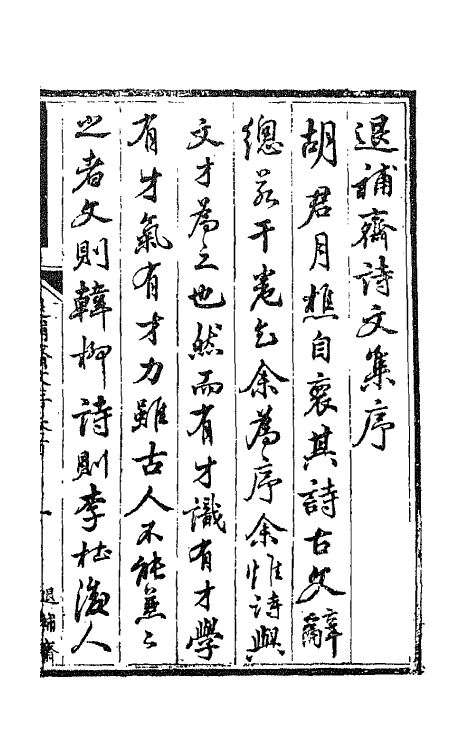 退補齋詩文集序
胡君月樵自裒其詩古文辭
總若干卷乞余為序余惟詩與
文才為之也然而有才識有才學
有才氣有才力雖古人不能兼兼
之者文則韓柳詩則李杜後人
退補齋